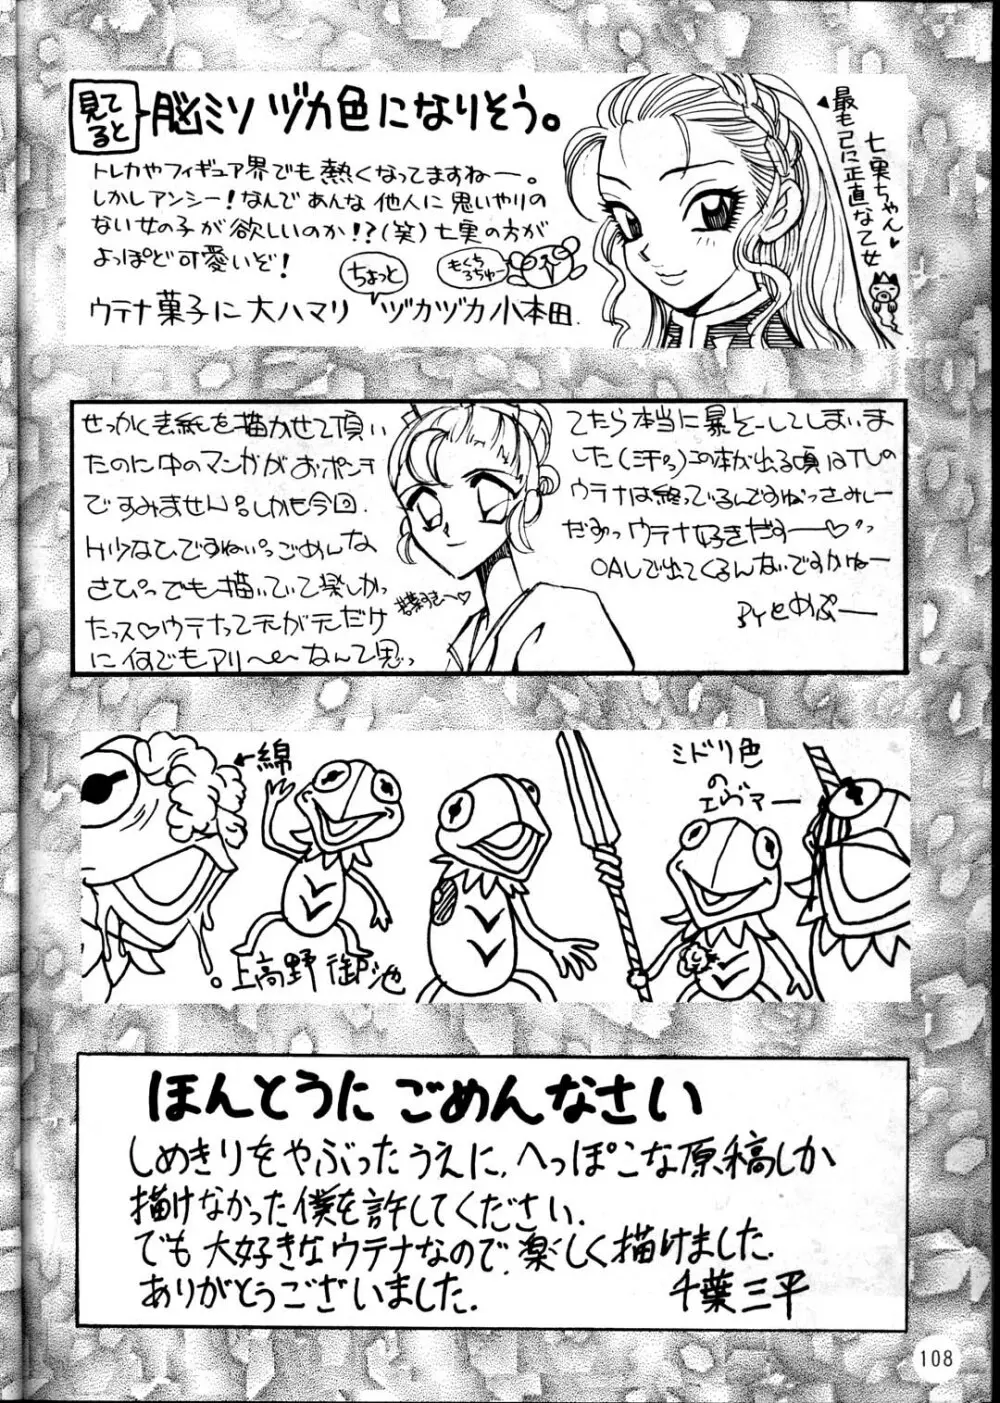 見てると
脳ミソ ヅカ色になりそう。
トレカやフィギュア界でも熱くなってますねー。
しかしアンシー!なんであんな他人に思いやりの
ない女の子が欲しいのか!?(笑)七実の方が
よっぽど可愛いぞ!
ちょっと
もくもくちゅー
ウテナ菓子に大ハマリ ヅカヅカ小本田.
七実ちゃん♥
最も己に正直な乙女
せっかく表紙を描かせて頂い
たのに中のマンガがおポンチ
ですみません。しかも今回
H少なひですねぃっごめんな
さひっでも描いていて楽しかっ
たっス♡ウテナって元が元だけ
に何でもアリ〜〜なんて思っ
てたら本当に暴そーしてしまいま
した(汗っ)この本が出る頃はTVの
ウテナは終っているんですねっさみしー
だすっウテナ好きだすー♡っ
OAVで出てくるんないですかねー
BYとめぷー
←綿
上高野御池
ミドリ色
の
エヴァー
ほんとうに ごめんなさい
しめきりをやぶったうえに、へっぽこな原稿しか
描けなかった僕を許してください.
でも大好きなウテナなので、楽しく描けました.
ありがとうございました.
千葉三平
108